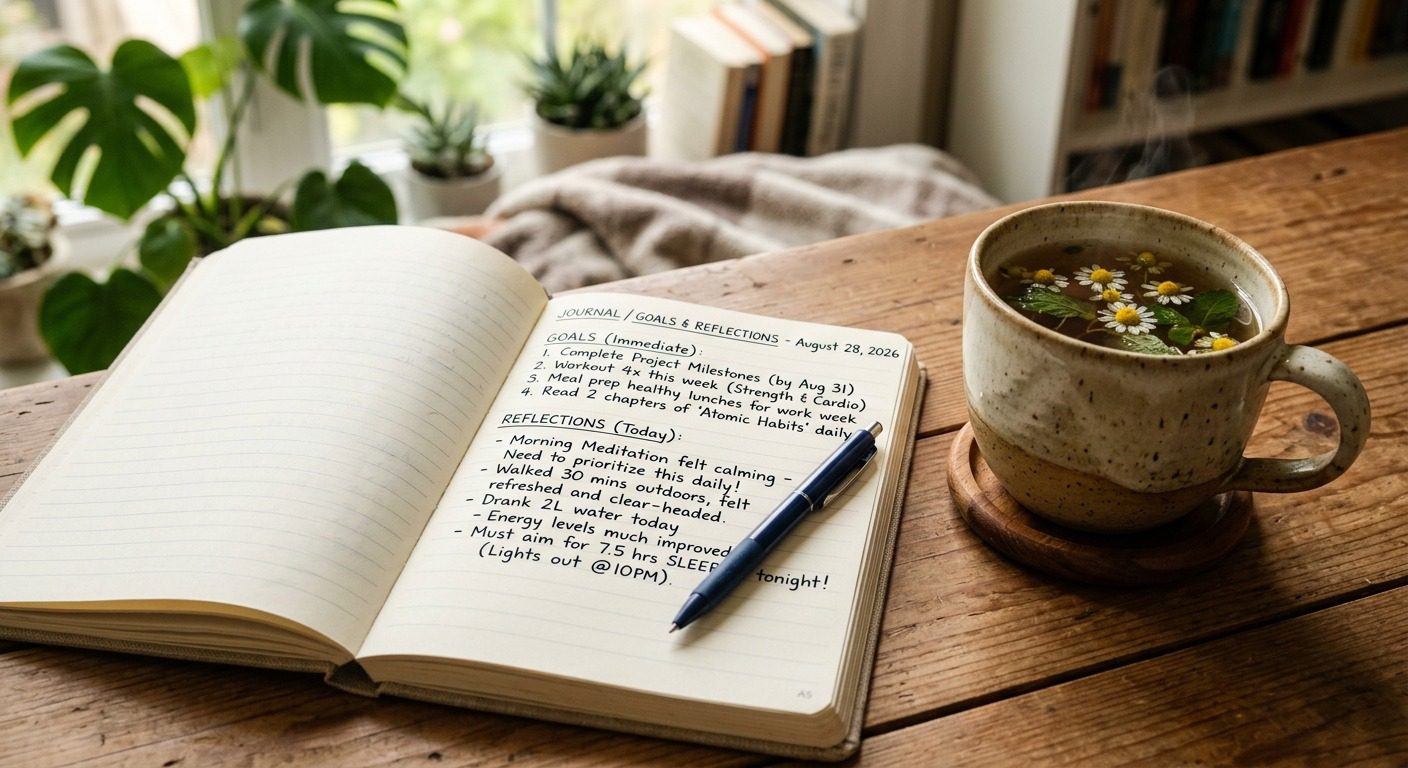 JOURNAL / GOALS & REFLECTIONS - August 28, 2026
GOALS (Immediate):
1. Complete Project Milestones (by Aug 31)
2. Workout 4x this week (Strength & Cardio)
5. Meal prep healthy lunches for work week
4. Read 2 chapters of 'Atomic Habits' daily
REFLECTIONS (Today):
- Morning Meditation felt calming -
Need to prioritize this daily!
- Walked 30 mins outdoors, felt
refreshed and clear-headed.
- Drank 2L water today
- Energy levels much improved
- Must aim for 7.5 hrs SLEEP tonight!
(Lights out @10PM).
A5